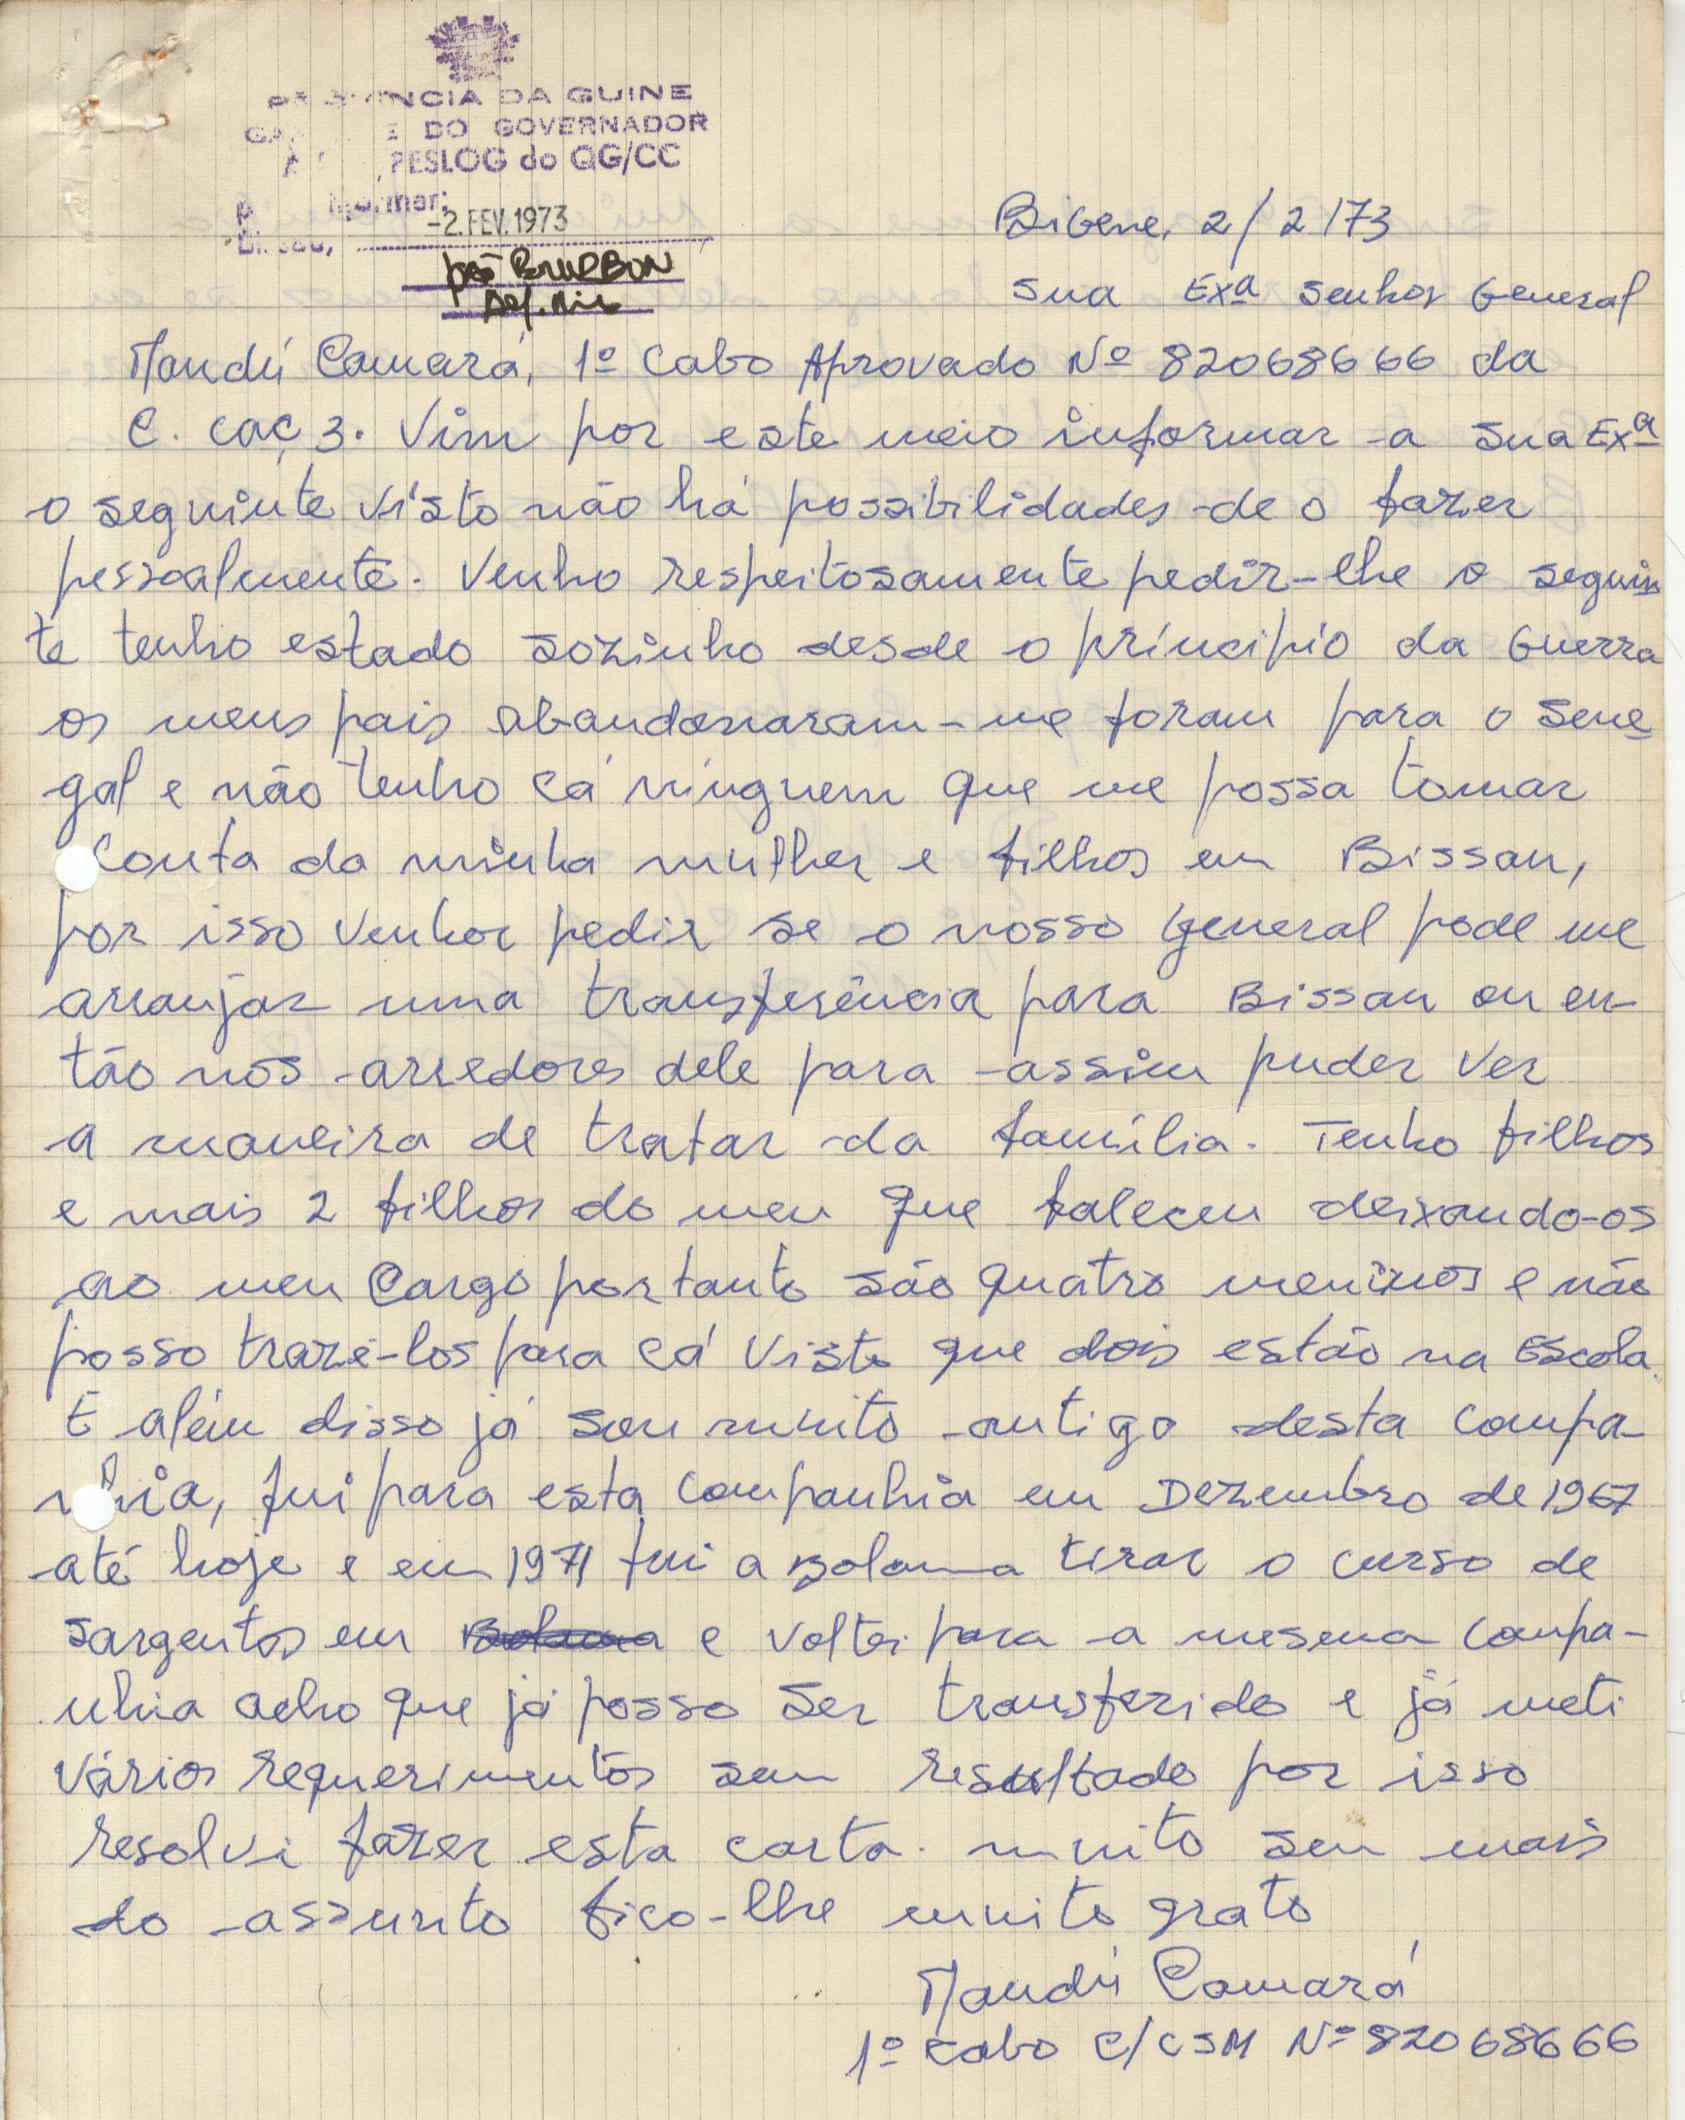 PROVINCIA DA GUINE
DO GOVERNADOR
PESLOG do QG/CC
informar:
-2.FEV.1973
José BOURBON
Bigene, 2/2/73
Sua Exª Senhor General
Mandú Camará, 1º Cabo Aprovado Nº 82068666 da
C. caç 3. Vim por este meio informar a sua Exª
o seguinte visto não há possibilidades de o fazer
pessoalmente. Venho respeitosamente pedir-lhe o seguin
te tenho estado sozinho desde o príncipio da Guerra
os meus pais abandonaram-me foram para o Sene
gal e não tenho cá ninguem que me possa tomar
conta da minha mulher e filhos em Bissau,
por isso venhor pedir se o nosso General pode me
arranjar uma transferência para Bissau ou en-
tão nos arredores dele para assim puder ver
a maneira de tratar da família. Tenho filhos
e mais 2 filhos do meu que faleceu deixando-os
ao meu cargo portanto são quatro meninos e não
posso traze-los para cá visto que dois estão na Escola.
E além disso já sou muito antigo desta compa-
nhia, fui para esta companhia em Dezembro de 1967
até hoje e em 1971 fui a Bolama tirar o curso de
sargentos em Bolama e voltei para a mesma compa-
nhia acho que já posso ser transferido e já meti
vários requerimentos sem resultado por isso
resolvi fazer esta carta. muito sem mais
do assunto fico-lhe muito grato
Mandú Camará
1º Cabo C/CSM Nº 82068666